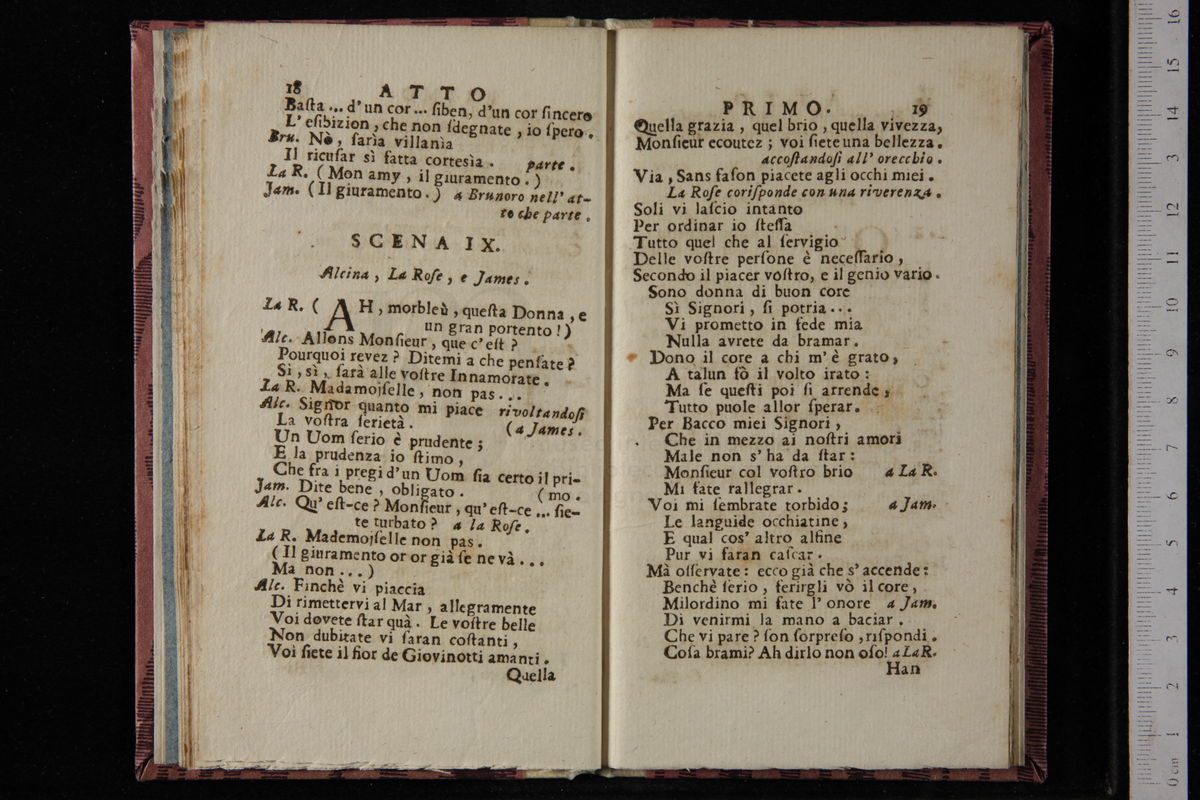 18 ATTO
Basta ... d'un cor ... siben, d'un cor sincero
L' esibizion, che non sdegnate, io spero.
Bru. Nò, sarìa villanìa
Il ricusar sì fatta cortesìa. parte.
La R. (Mon amy, il giuramento.)
Jam. (Il giuramento.) a Brunoro nell' at-
to che parte.
SCENA IX.
Alcina, La Rose, e James.
La R. ( AH, morbleù, questa Donna, e
un gran portento!)
Alc. Allons Monsieur, que c'est?
Pourquoi revez? Ditemi a che pensate?
Si, sì, sarà alle vostre Innamorate.
La R. Madamojselle, non pas...
Alc. Signor quanto mi piace rivoltandosi
La vostra serietà. (a James.
Un Uom serio è prudente;
E la prudenza io stimo,
Che fra i pregi d'un Uom sia certo il pri-
Jam. Dite bene, obligato. (mo.
Alc. Qu' est-ce? Monsieur, qu'est-ce ... sie-
te turbato? a la Rose.
La R. Mademojselle non pas.
(Il giuramento or or già se ne và...
Ma non...)
Alc. Finchè vi piaccia
Di rimettervi al Mar, allegramente
Voi dovete star quà. Le vostre belle
Non dubitate vi saran costanti,
Voi siete il fior de Giovinotti amanti.
Quella
PRIMO. 19
Quella grazia, quel brio, quella vivezza,
Monsieur ecoutez; voi siete una bellezza.
accostandosi all' orecchio.
Via, Sans fason piacete agli occhi miei.
La Rose corisponde con una riverenza.
Soli vi lascio intanto
Per ordinar io stessa
Tutto quel che al servigio
Delle vostre persone è necessario,
Secondo il piacer vostro, e il genio vario.
Sono donna di buon core
Sì Signori, si potria...
Vi prometto in fede mia
Nulla avrete da bramar.
Dono il core a chi m'è grato,
A talun fò il volto irato:
Ma se questi poi si arrende,
Tutto puole allor sperar.
Per Bacco miei Signori,
Che in mezzo ai nostri amori
Male non s'ha da star:
Monsieur col vostro brio a La R.
Mi fate rallegrar.
Voi mi sembrate torbido; a Jam.
Le languide occhiatine,
E qual cos' altro alfine
Pur vi faran cascar.
Mà osservate: ecco già che s'accende:
Benchè serio, ferirgli vò il core,
Milordino mi fate l' onore a Jam.
Di venirmi la mano a baciar.
Che vi pare? son sorpreso, rispondi.
Cosa brami? Ah dirlo non oso! a La R.
Han